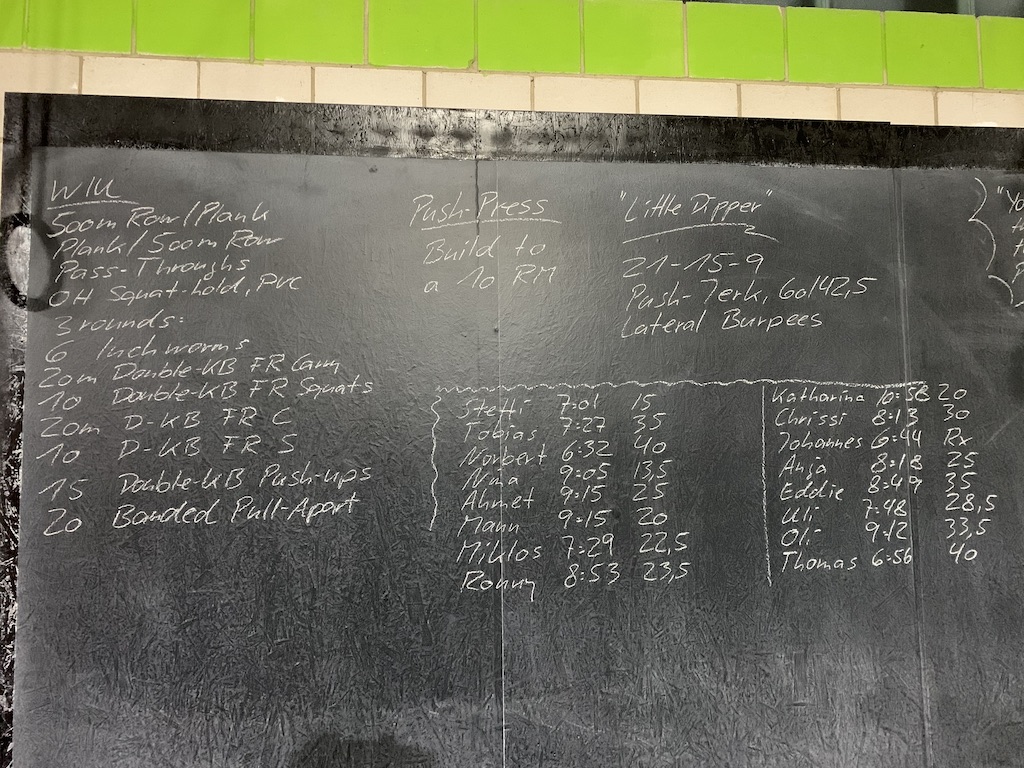 WU
500m Row/Plank
Plank/500m Row
Pass-Throughs
OH Squat-hold, PVC
3 rounds:
6 Inchworms
20m Double-KB FR Carry
10 Double-KB FR Squats
20m D-KB FR C
10 D-KB FR S
15 Double-KB Push-ups
20 Banded Pull-Apart
Push-Press
Build to
a 10 RM
"Little Dipper"
21-15-9
Push-Jerk, 60/42,5
Lateral Burpees
Steffi 7:01 15
Tobias 7:27 35
Norbert 6:32 40
Nina 9:05 13,5
Ahmet 9:15 25
Mann 9:15 20
Miklos 7:29 22,5
Ronny 8:53 23,5
Katharina 10:58 20
Chrissi 8:13 30
Johannes 6:44 Rx
Anja 8:18 25
Eddie 8:49 35
Uli 7:48 28,5
Oli 9:12 33,5
Thomas 6:56 40